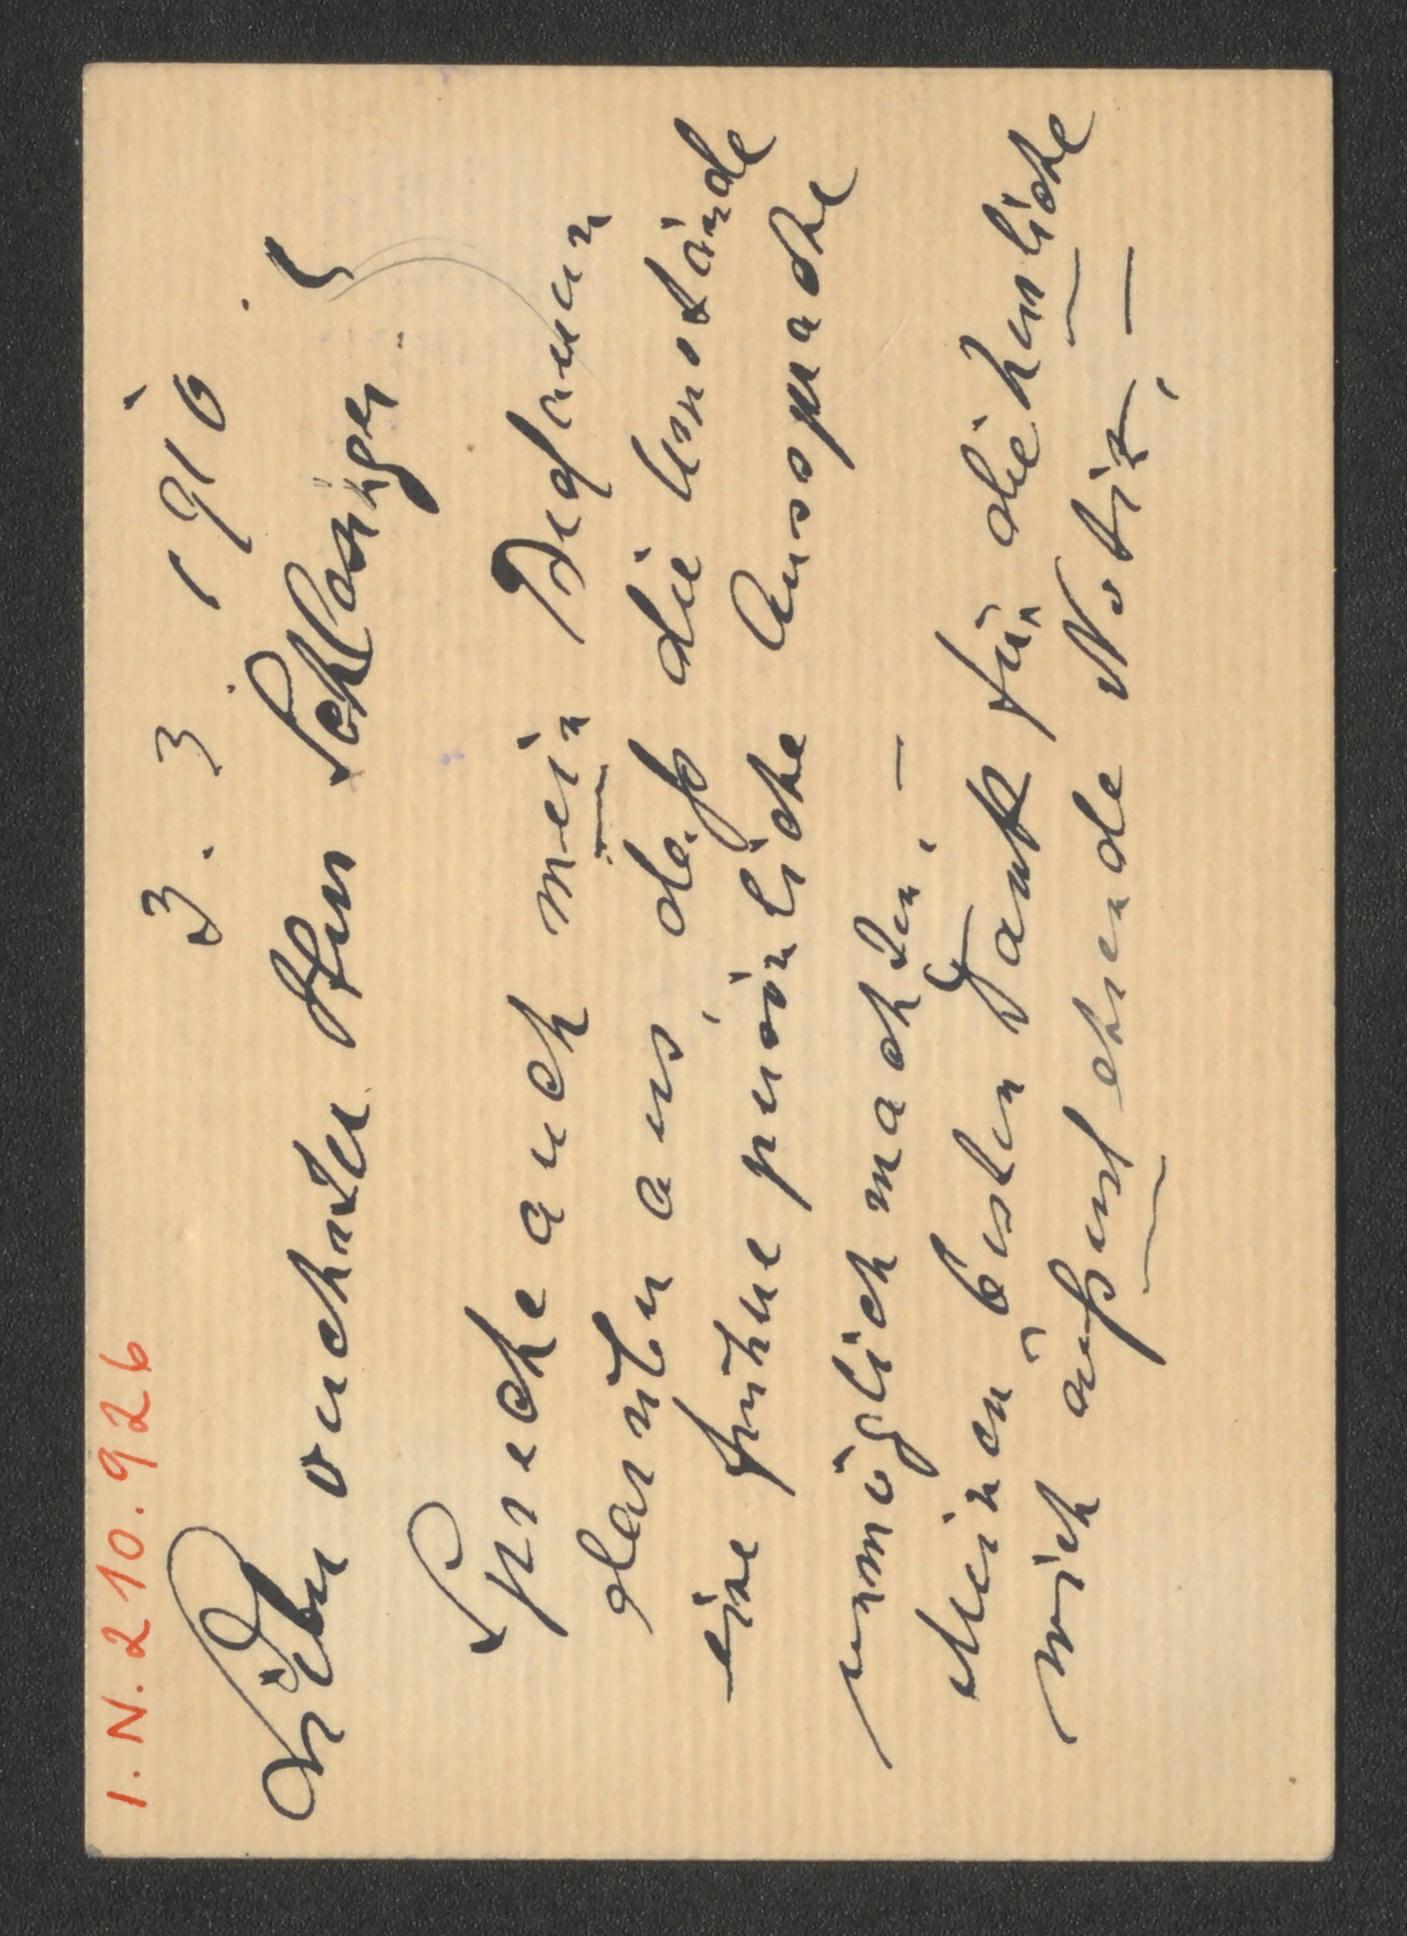 I. N. 210.926
3. 3. 1910.
Lieber verehrter Herr Schlesinger!
Spreche auch mein Bedauern
darüber aus, daß die Umstände
eine frühere persönliche Aussprache
unmöglich machten. —
Meinen besten Dank für die herzliche
mich äußerst ehrende Notiz. —